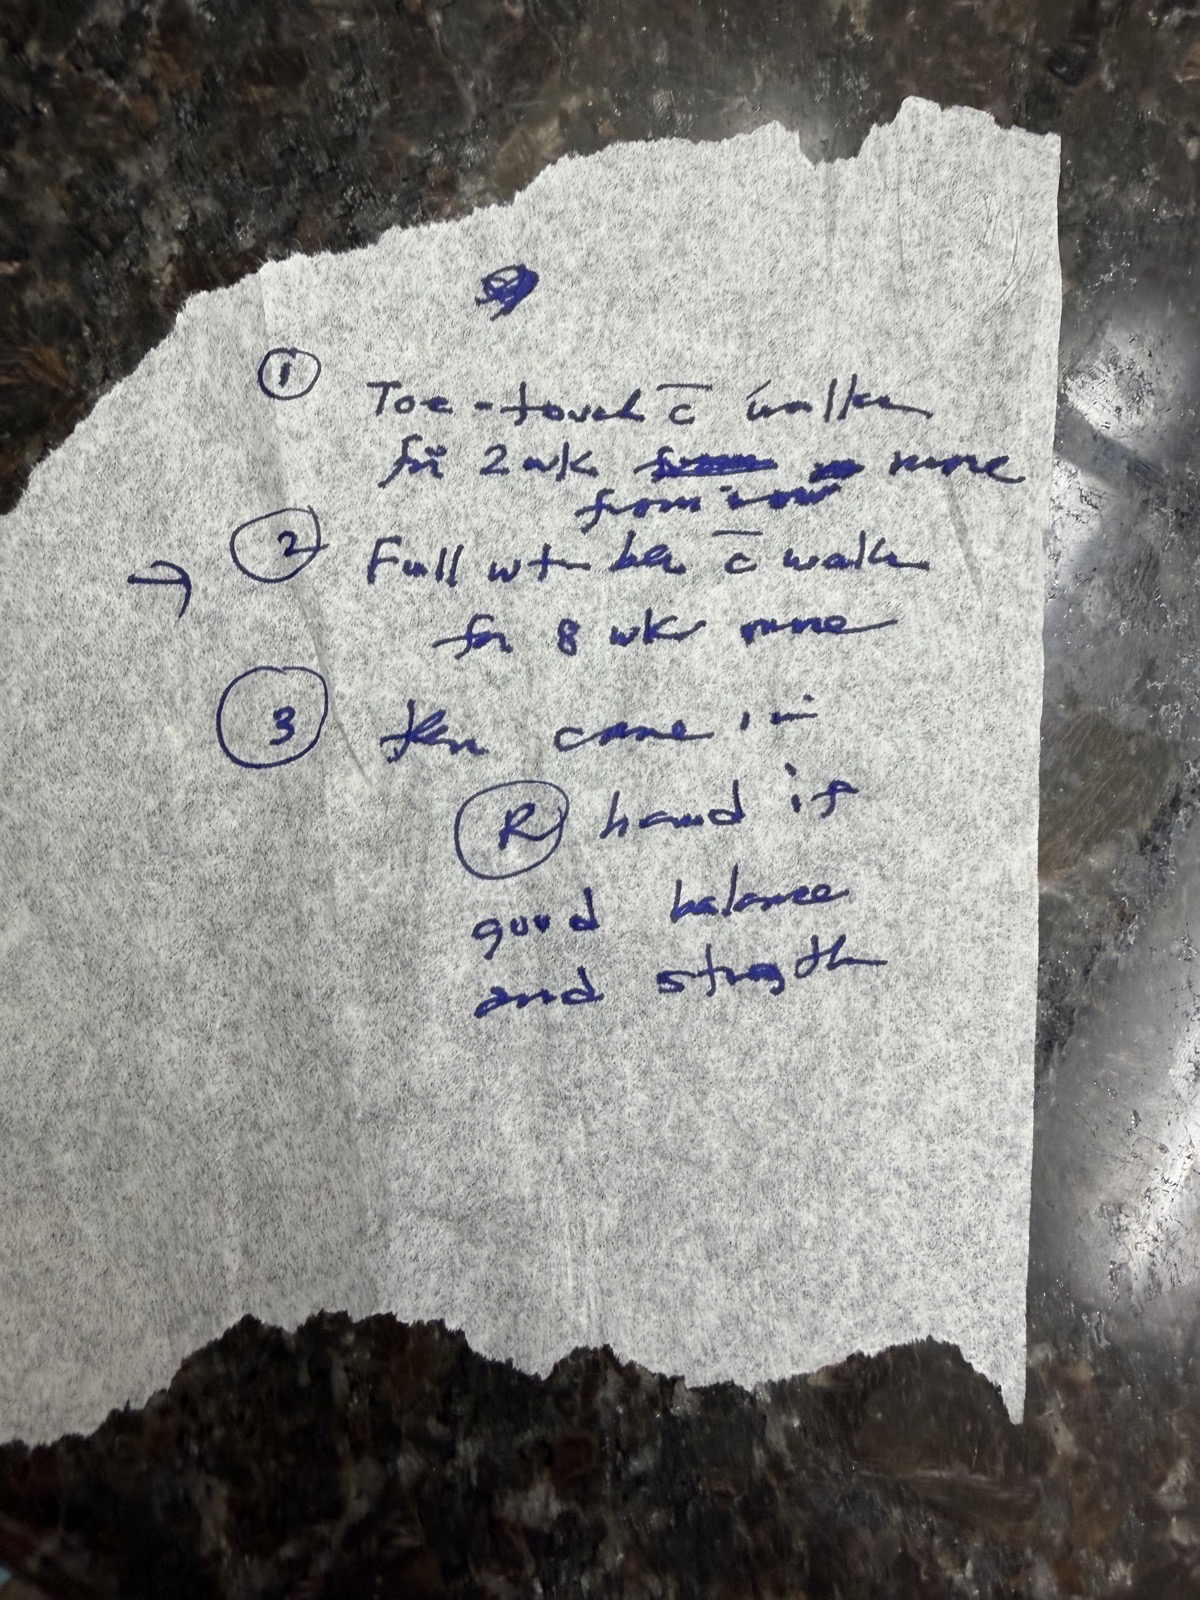 1 Toe-touch c̄ walker
for 2 wk more
from now
→ 2 Full wt bea c̄ walker
for 8 wks more
3 then cane in
R hand if
good balance
and strength